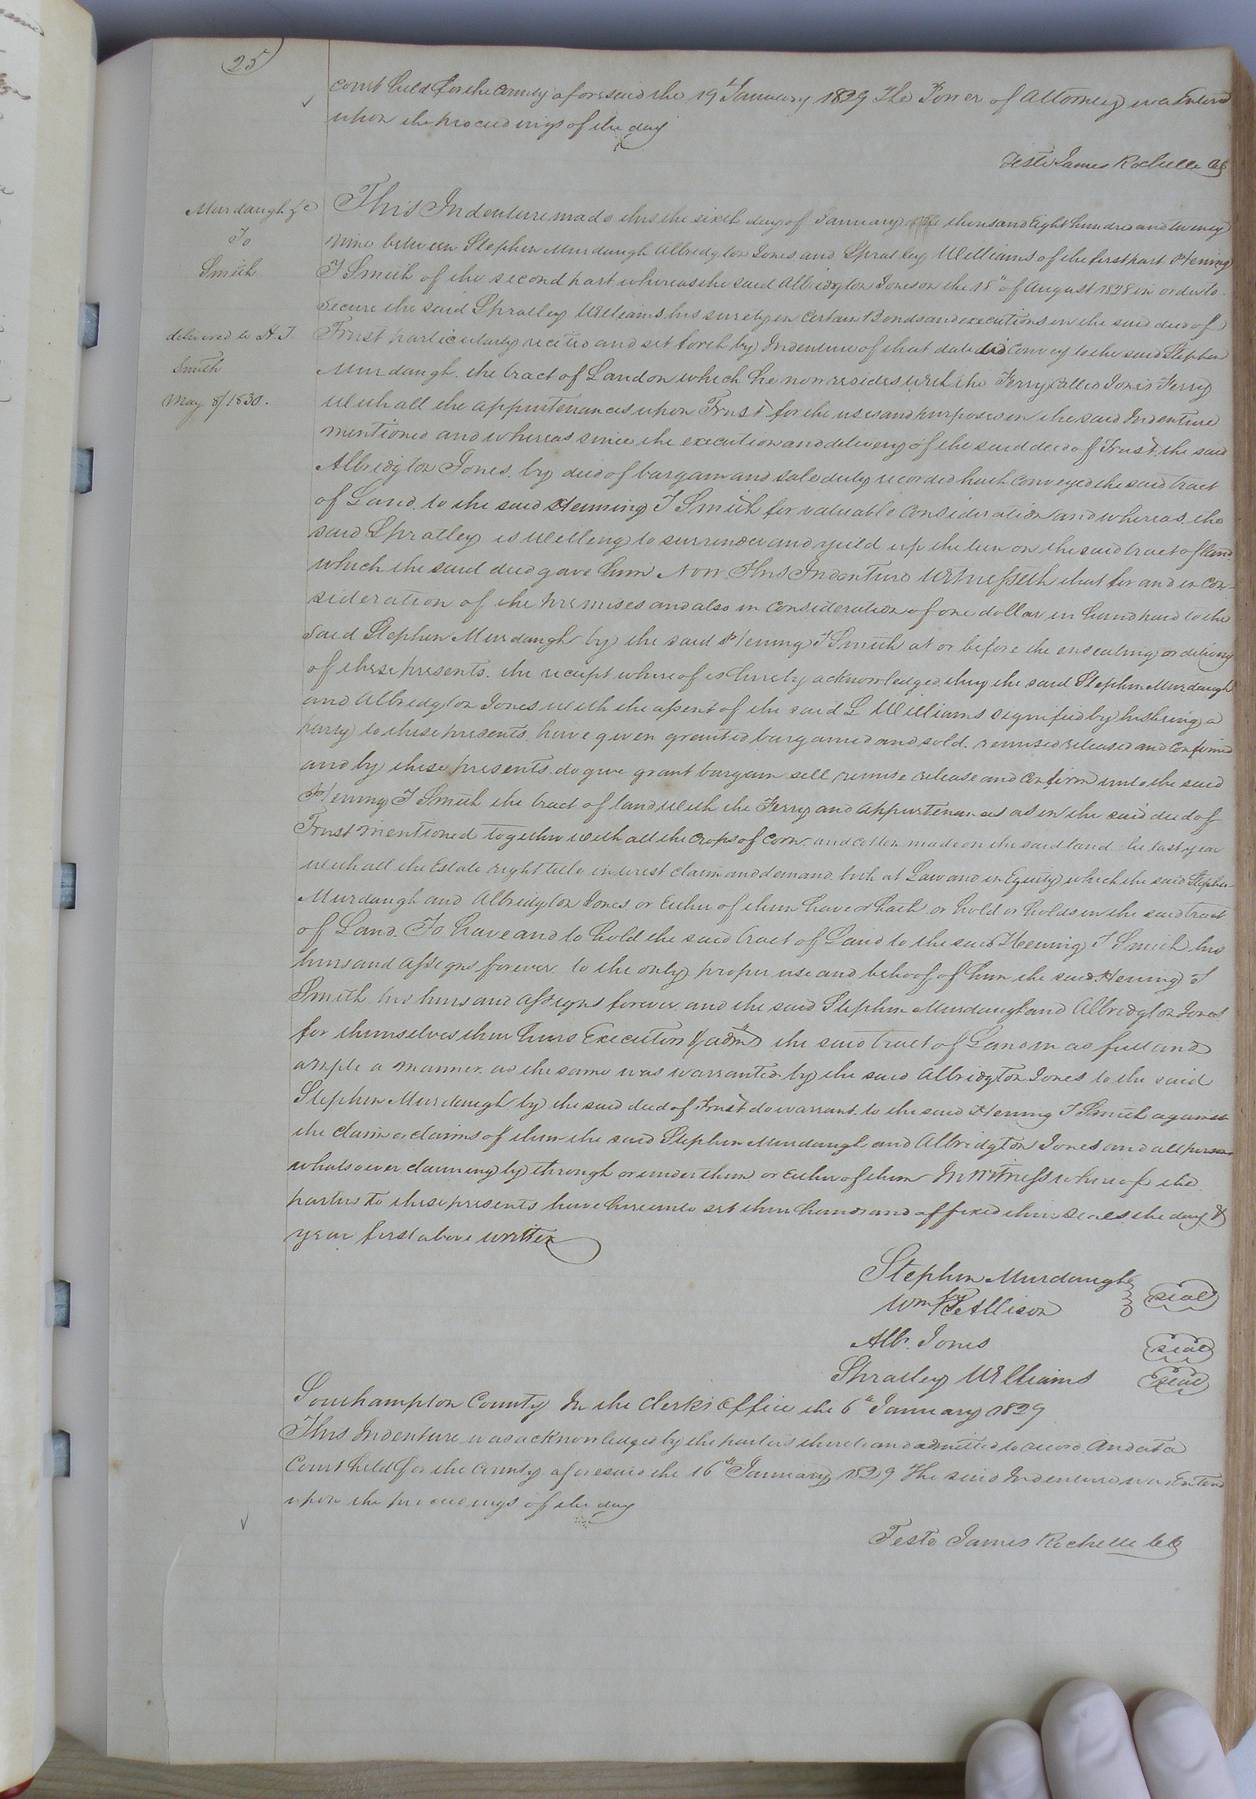 25
Court held for the County aforesaid the 19th January 1829 The Power of Attorney was Entered
upon the proceedings of the day
Teste James Rochelle CC
Murdaugh &c
To
Smith
delivered to H. T.
Smith
May 8/1830.
This Indenture made this the sixth day of January thousand Eight hundred and twenty
nine between Stephen Murdaugh Albridgton Jones and Spratley Williams of the first part Henning
T Smith of the second part whereas the said Albridgton Jones on the 18th of August 1828 in order to
secure the said Spratley Williams his surety in certain Bonds and executions in the said deed of
Trust particularly recited and set forth by Indenture of that date did Convey to the said Stephen
Murdaugh the tract of Land on which he now resides with the Ferry called Jones Ferry
with all the appurtenances upon Trust for the uses and purposes in the said Indenture
mentioned and whereas since the execution and delivery of the said deed of Trust the said
Albridgton Jones by deed of bargain and sale duly recorded hath Conveyed the said tract
of Land to the said Henning T Smith for valuable Consideration and whereas the
said Spratley is Willing to surrender and yield up the lien on the said tract of Land
which the said deed gave him Now This Indenture Witnesseth that for and in Con-
sideration of the premises and also in Consideration of one dollar in hand paid to the
said Stephen Murdaugh by the said Henning T Smith at or before the ensealing or delivery
of these presents the receipt whereof is hereby acknowledged they the said Stephen Murdaugh
and Albridgton Jones with the assent of the said S Williams signified by his being a
party to these presents have given granted bargained and sold remised released and confirmed
and by these presents do give grant bargain sell remise release and Confirm unto the said
Henning T Smith the tract of land with the Ferry and appurtenances as in the said deed of
Trust mentioned together with all the Crops of Corn and cotton made on the said land the last year
with all the Estate right title interest claim and demand both at Law and in Equity which the said Stephen
Murdaugh and Albridgton Jones or Either of them have or hath or hold or holds in the said tract
of Land To have and to hold the said tract of Land to the said Henning T Smith his
heirs and assigns forever to the only proper use and behoof of him the said Henning T
Smith his heirs and assigns forever and the said Stephen Murdaugh and Albridgton Jones
for themselves their heirs Executors & admrs the said tract of Land in as full and
ample a manner as the same was warranted by the said Albridgton Jones to the said
Stephen Murdaugh by the said deed of Trust do warrant to the said Henning T Smith against
the claim or claims of them the said Stephen Murdaugh and Albridgton Jones and all persons
whatsoever claiming by through or under them or Either of them In Witness whereof the
parties to these presents have hereunto set their hands and affixed their seals the day &
year first above written
Stephen Murdaugh
Wm Allison seal
Alb. Jones seal
Spratley Williams seal
Southampton County In the Clerks Office the 6th January 1829
This Indenture was acknowledged by the parties thereto and admitted to record And at a
Court held for the County aforesaid the 16th January 1829 The said Indenture was Entered
upon the proceedings of the day
Teste James Rochelle CC